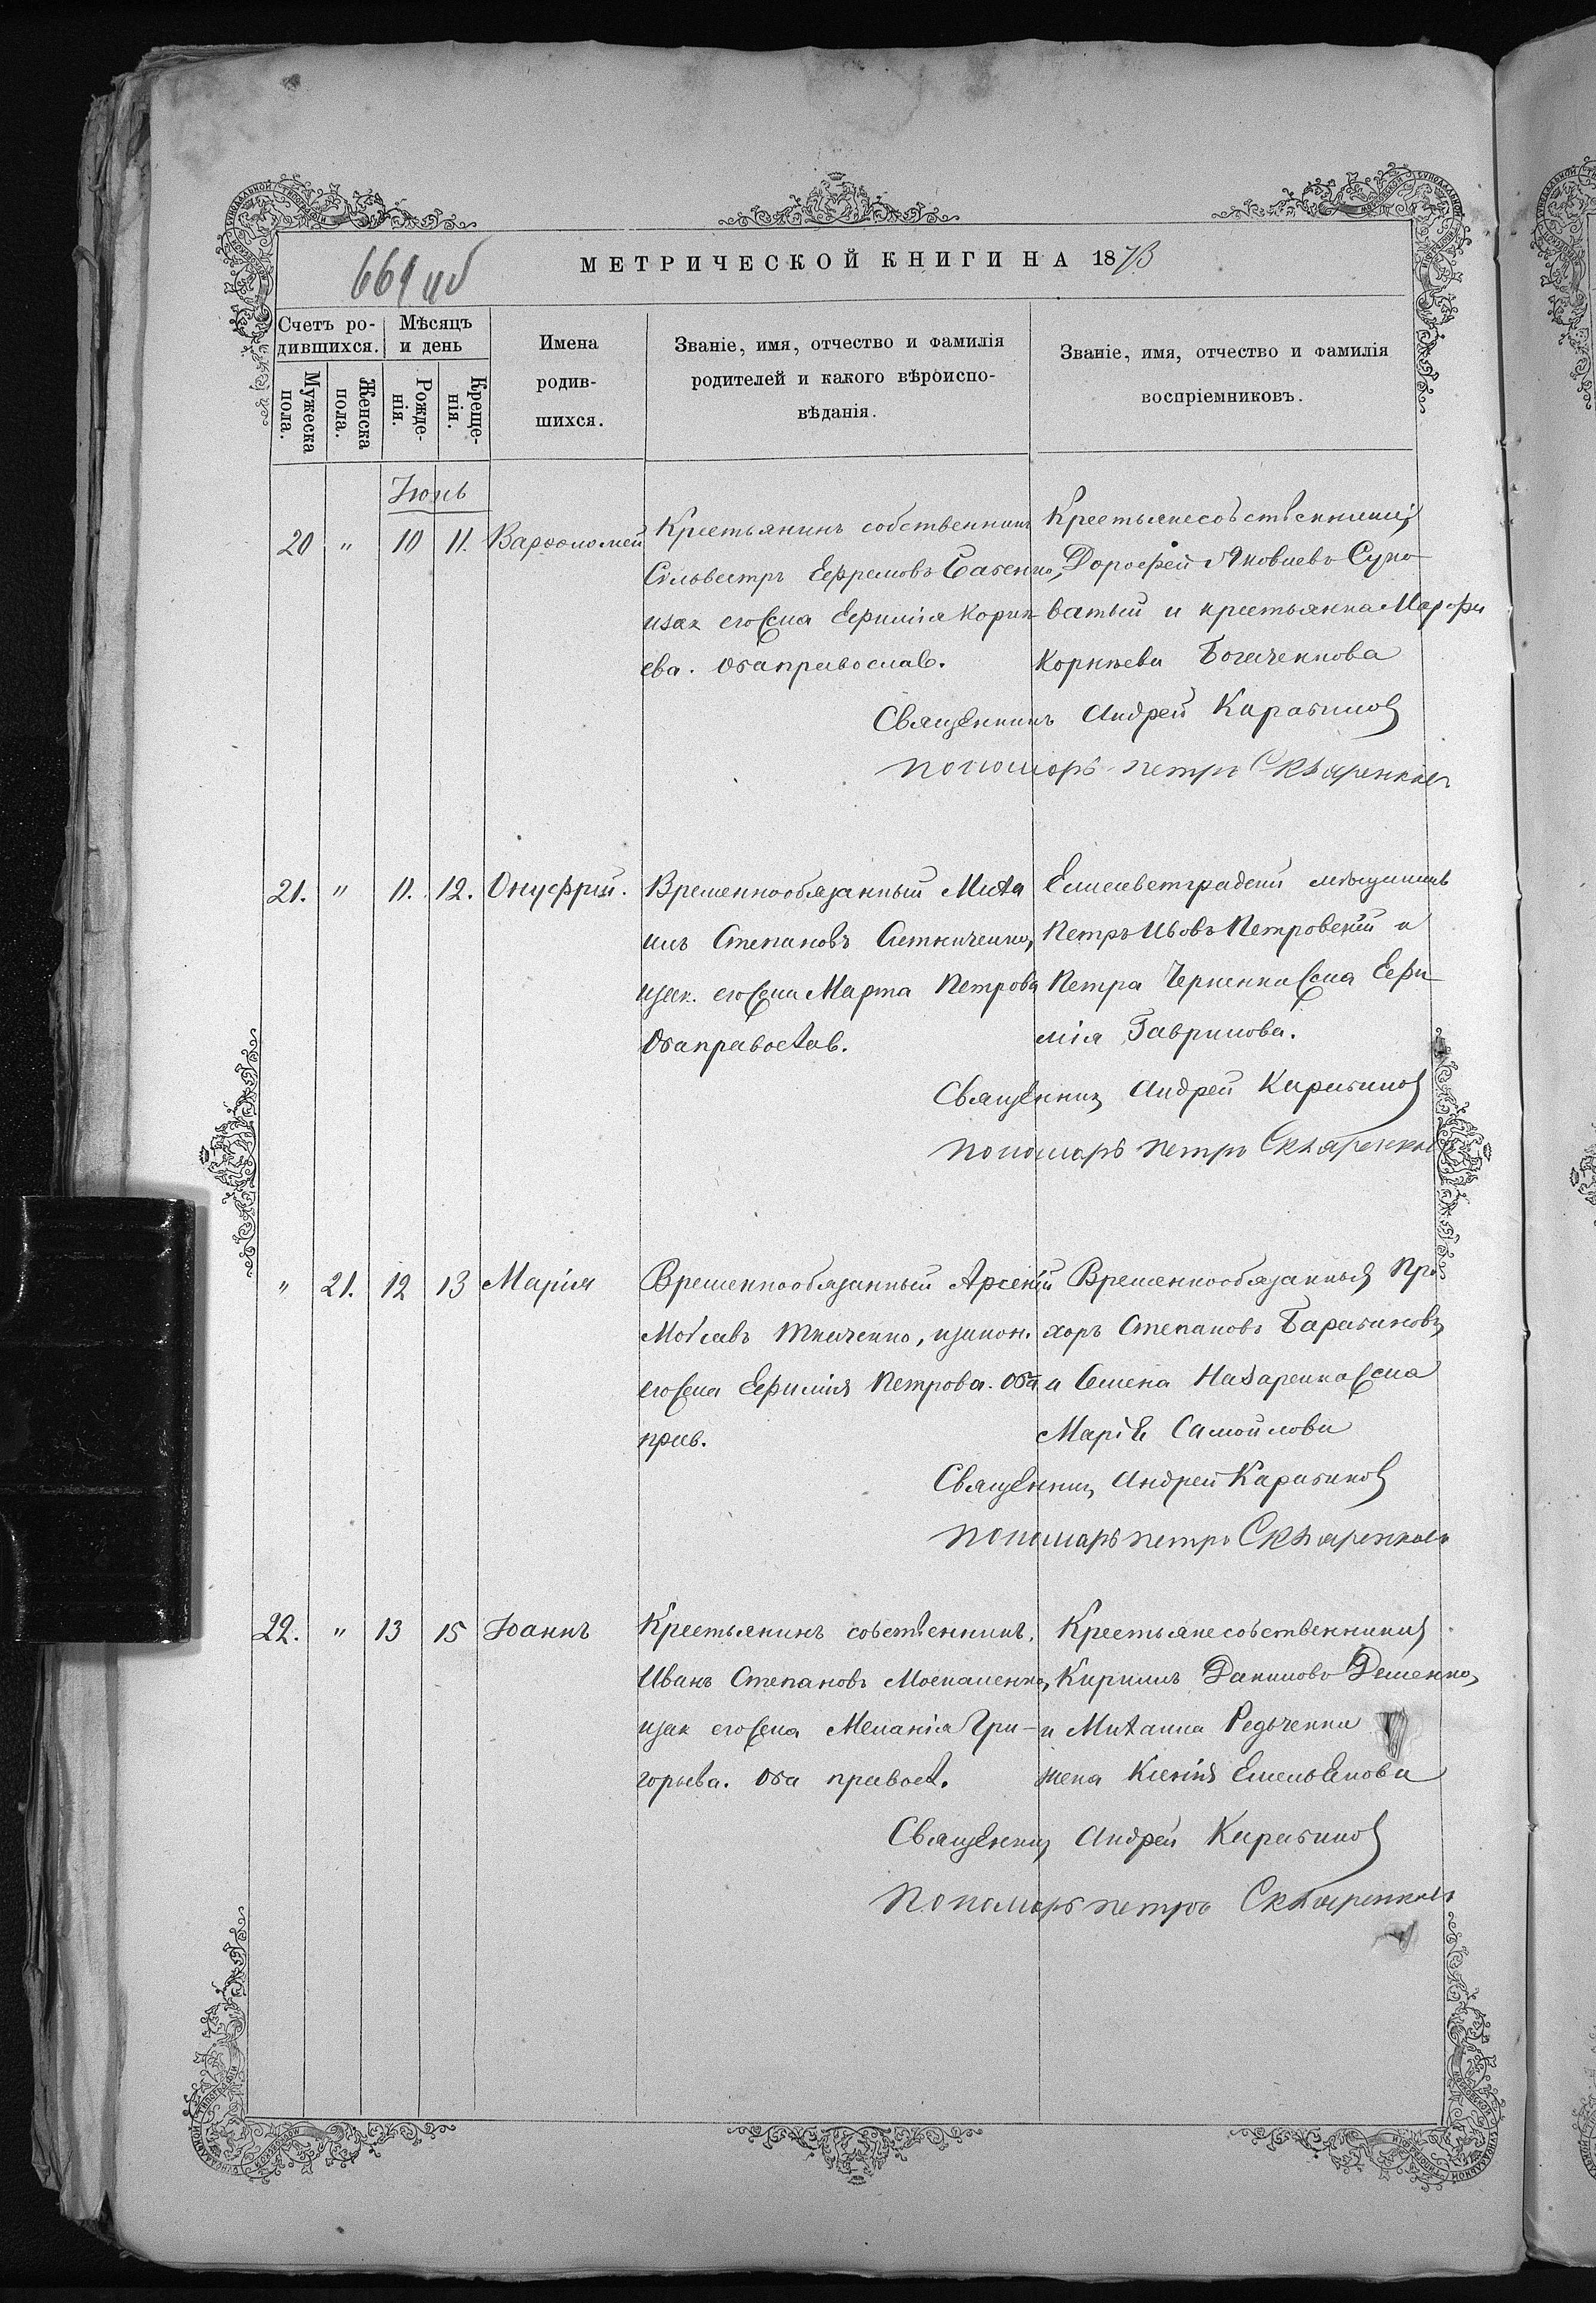 661 об
МЕТРИЧЕСКОЙ КНИГИ НА 1873
Счетъ ро-
дившихся.
Мѣсяцъ
и день
Мужеска
пола.
Женска
пола.
Рожде-
нія.
Креще-
нія.
Имена
родив-
шихся.
Званіе, имя, отчество и фамилія
родителей и какого вѣроиспо-
вѣданія.
Званіе, имя, отчество и фамилія
воспріемниковъ.
Іюнь
20 " 10 11. Варѳоломей
Крестьянинъ собственникъ
Сильвестръ Ефремовъ
изак его жена Ефимія Корни-
ева. Оба православ.
Крестьяне собственники,
Дорофей Яковлевъ Суко-
ватый и крестьянка Марфа
Корнѣева Богаченкова
Священникъ Андрей Карабиновъ
пономарь петръ Скляренковъ
21. " 11. 12. Онуфрій.
Временнообязанный Миха
илъ Степановъ Ситниченко,
изак. его жена Марта Петрова
Оба православ.
Елисаветградскій мѣщанинъ
Петръ Ивовъ Петровскій и
Петра Черненка жена Ефи-
мія Гаврилова.
Священникъ Андрей Карабиновъ
пономарь петръ Скляренковъ
" 21. 12 13 Марія
Временнообязанный Арсеній
Ткаченко, изакон.
его жена Ефимія Петрова. Оба
прав.
Временнообязанный Про
хоръ Степановъ Барабановъ,
и Семена Назаренка жена
Марія Самойлова
Священникъ Андрей Карабиновъ
пономарь петръ Скляренковъ
22. " 13 15 Іоаннъ
Крестьянинъ собственникъ,
Иванъ Степановъ Москаленко,
изак его жена Меланія Гри-
горьева. Оба правосл.
Крестьяне собственники
Кирилъ Даниловъ Деменко,
и Михаила Редьченка
жена Ксенія Емельянова
Священникъ Андрей Карабиновъ
Пономарь петръ Скляренковъ